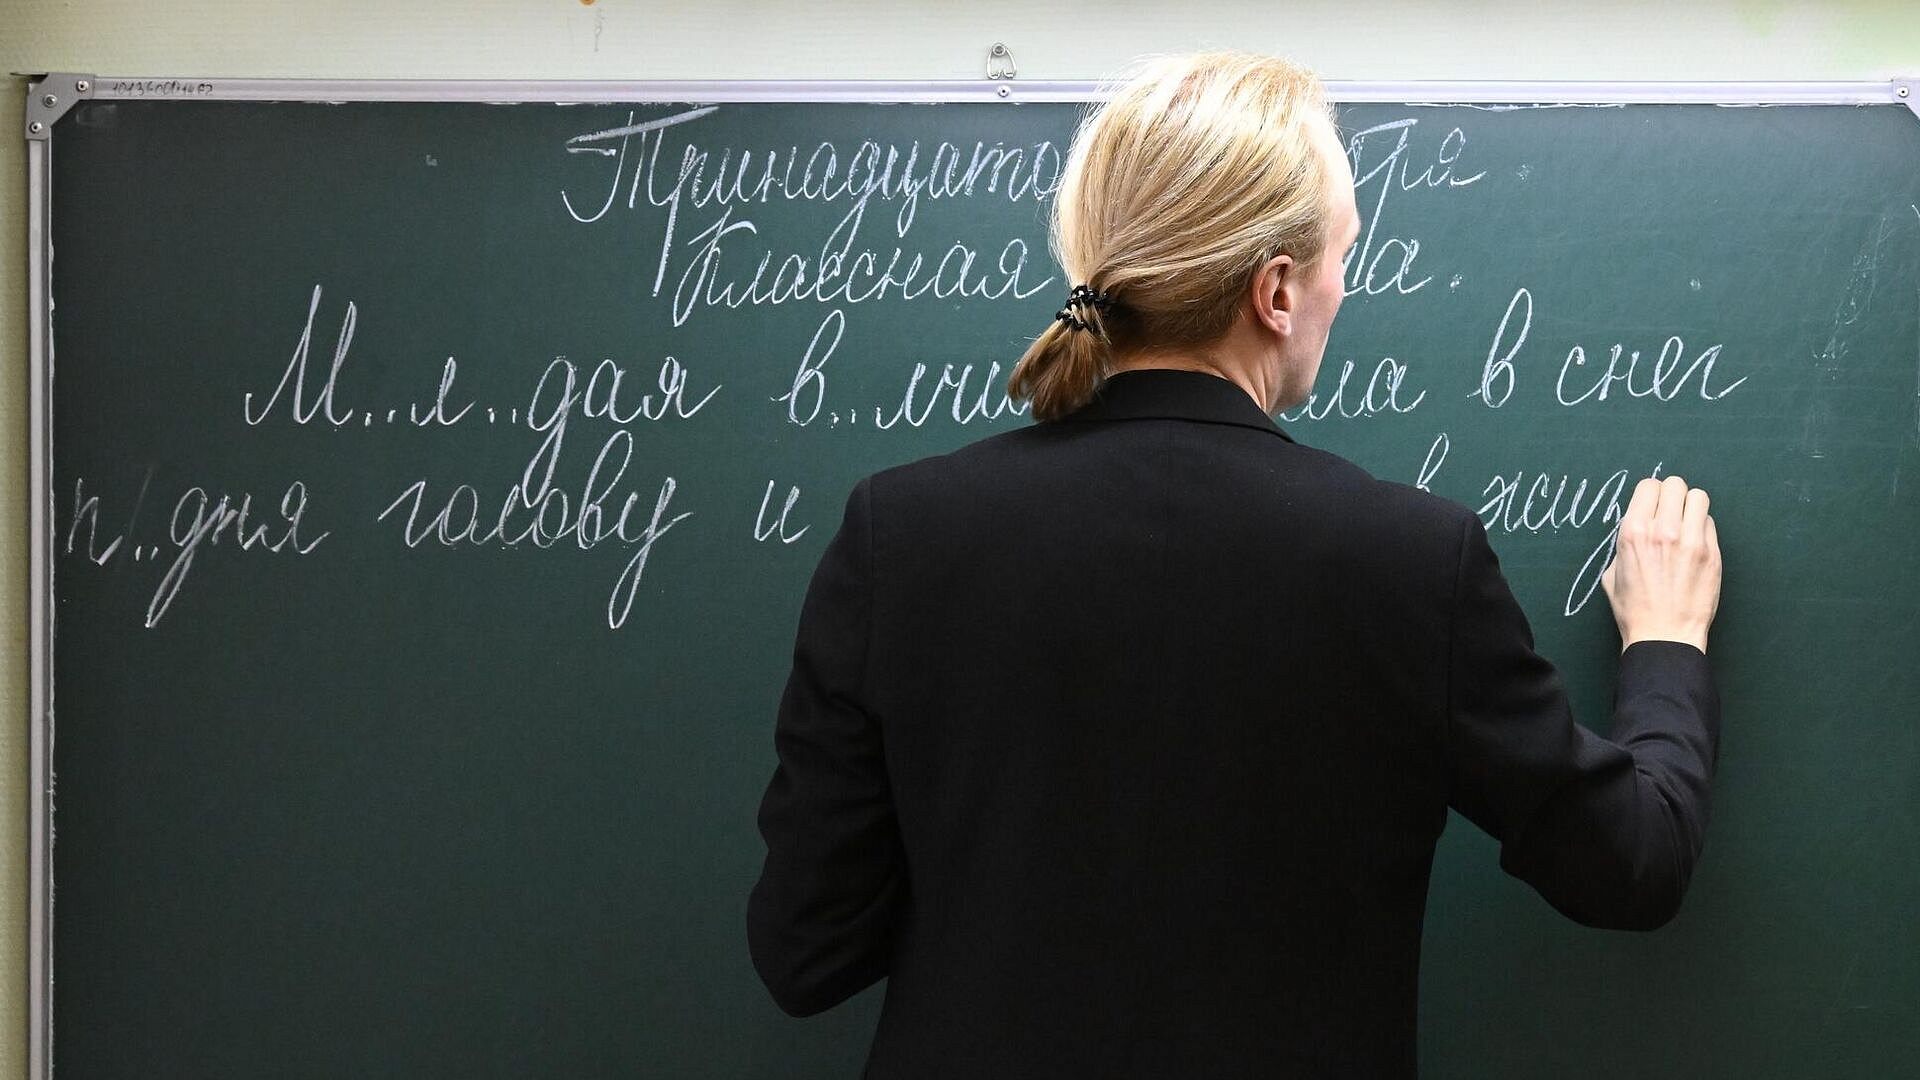 Тринадцато бря
Классная а.
М..л..дая в..лчи ла в снег
п..дняла голову и в жиз